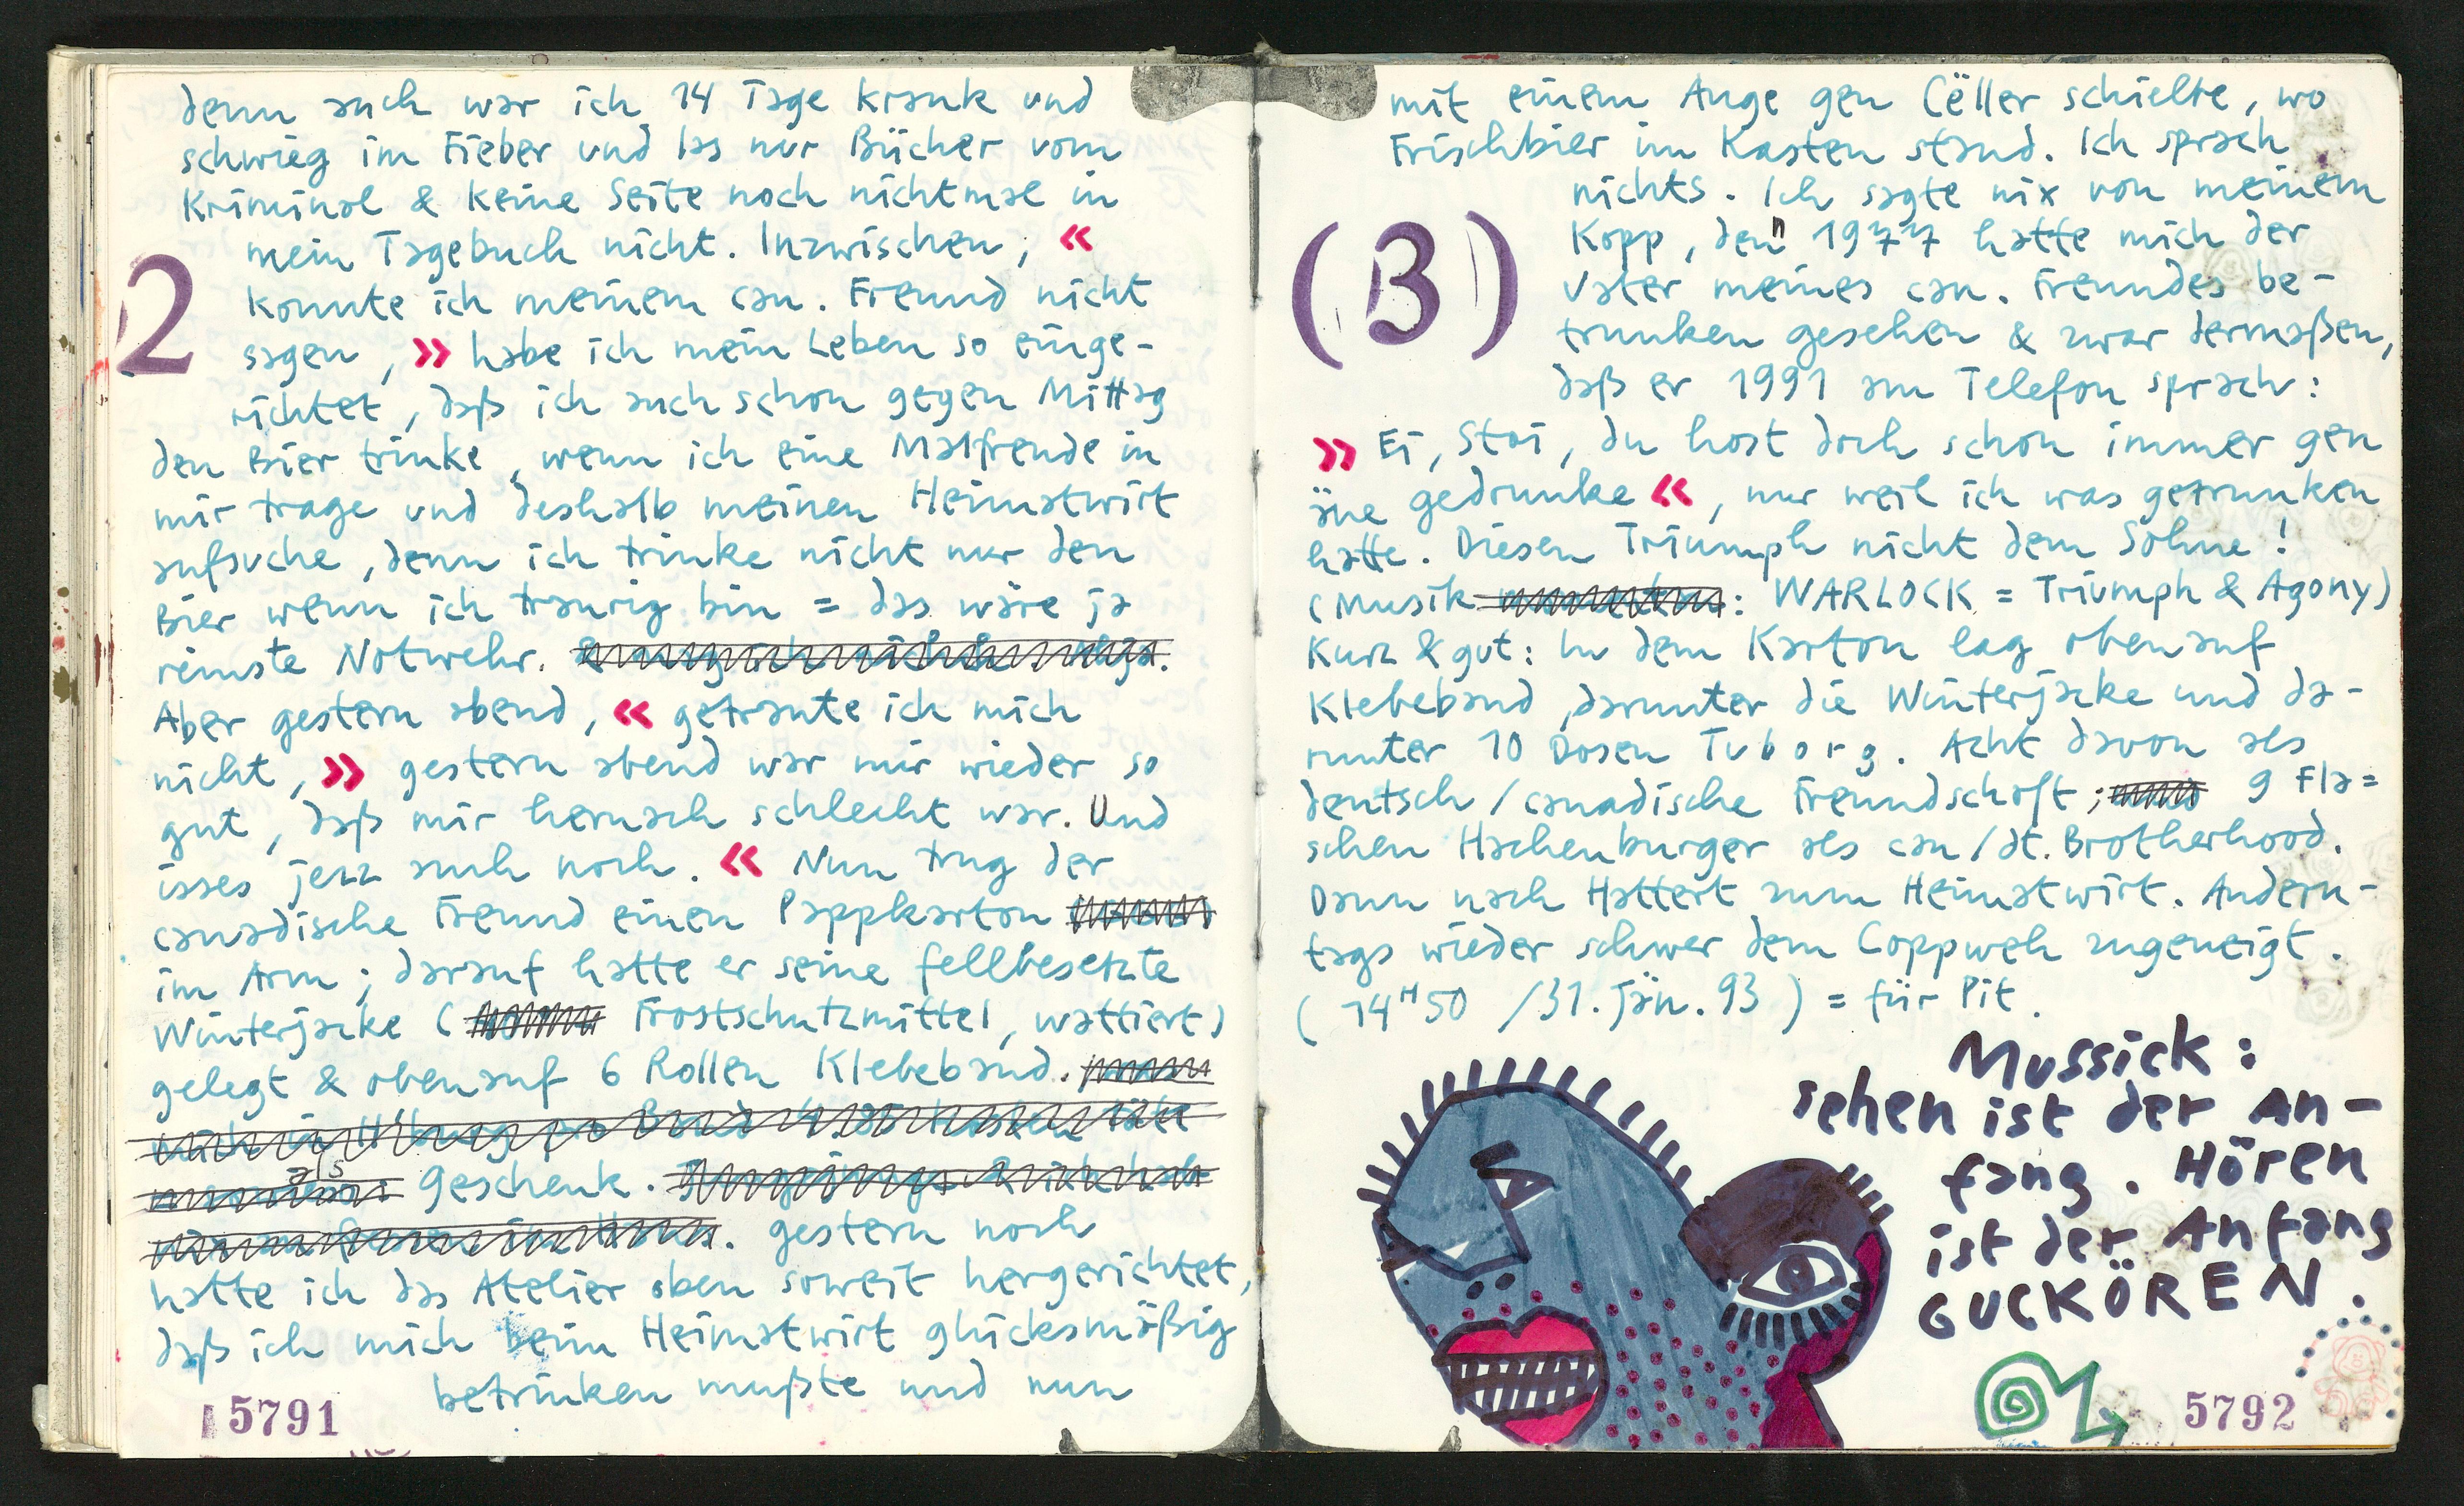 denn auch war ich 14 Tage krank und
schwieg im Fieber und las nur Bücher vom
Kriminal & keine Seite noch nichtmal in
mein Tagebuch nicht. Inzwischen, «
2
konnte ich meinem can. Freund nicht
sagen, » habe ich mein Leben so einge-
richtet, daß ich auch schon gegen Mittag
den Bier trinke, wenn ich eine Malfreude in
mir trage und deshalb meinen Heimatwirt
aufsuche, denn ich trinke nicht nur den
Bier wenn ich traurig bin = das wäre ja
reinste Notwehr.
Aber gestern abend, « getraute ich mich
nicht, » gestern abend war mir wieder so
gut, daß mir hernach schlecht war. Und
isses jezz auch noch. « Nun trug der
canadische Freund einen Pappkarton
im Arm; darauf hatte er seine fellbesetzte
Winterjacke ( Frostschutzmittel, wattiert)
gelegt & obenauf 6 Rollen Klebeband.
als
Geschenk.
gestern noch
hatte ich das Atelier oben soweit hergerichtet,
daß ich mich beim Heimatwirt glücksmäßig
betrinken mußte und nun
5791
mit einem Auge gen Cëller schielte, wo
Frischbier im Kasten stand. Ich sprach
nichts. Ich sagte nix von meinem
(3)
Kopp, denn 1977 hatte mich der
Vater meines can. Freundes be-
trunken gesehen & zwar dermaßen,
daß er 1991 am Telefon sprach:
» Ei, Stoi, du host doch schon immer gen
äne gedrunke «, nur weil ich was getrunken
hatte. Diesen Triumph nicht dem Sohne!
(Musik : WARLOCK = Triumph & Agony)
Kurz & gut: In dem Karton lag obenauf
Klebeband, darunter die Winterjacke und da-
runter 10 Dosen Tuborg. Acht davon als
deutsch/canadische Freundschaft; 9 Fla=
schen Hachenburger als can/dt. Brotherhood.
Dann nach Hattert zum Heimatwirt. Andern-
tags wieder schwer dem Coppweh zugeneigt.
(14H50 /31. Jän. 93) = für Pit.
Mussick:
sehen ist der An-
fang. Hören
ist der Anfang
GUCKÖREN.
5792